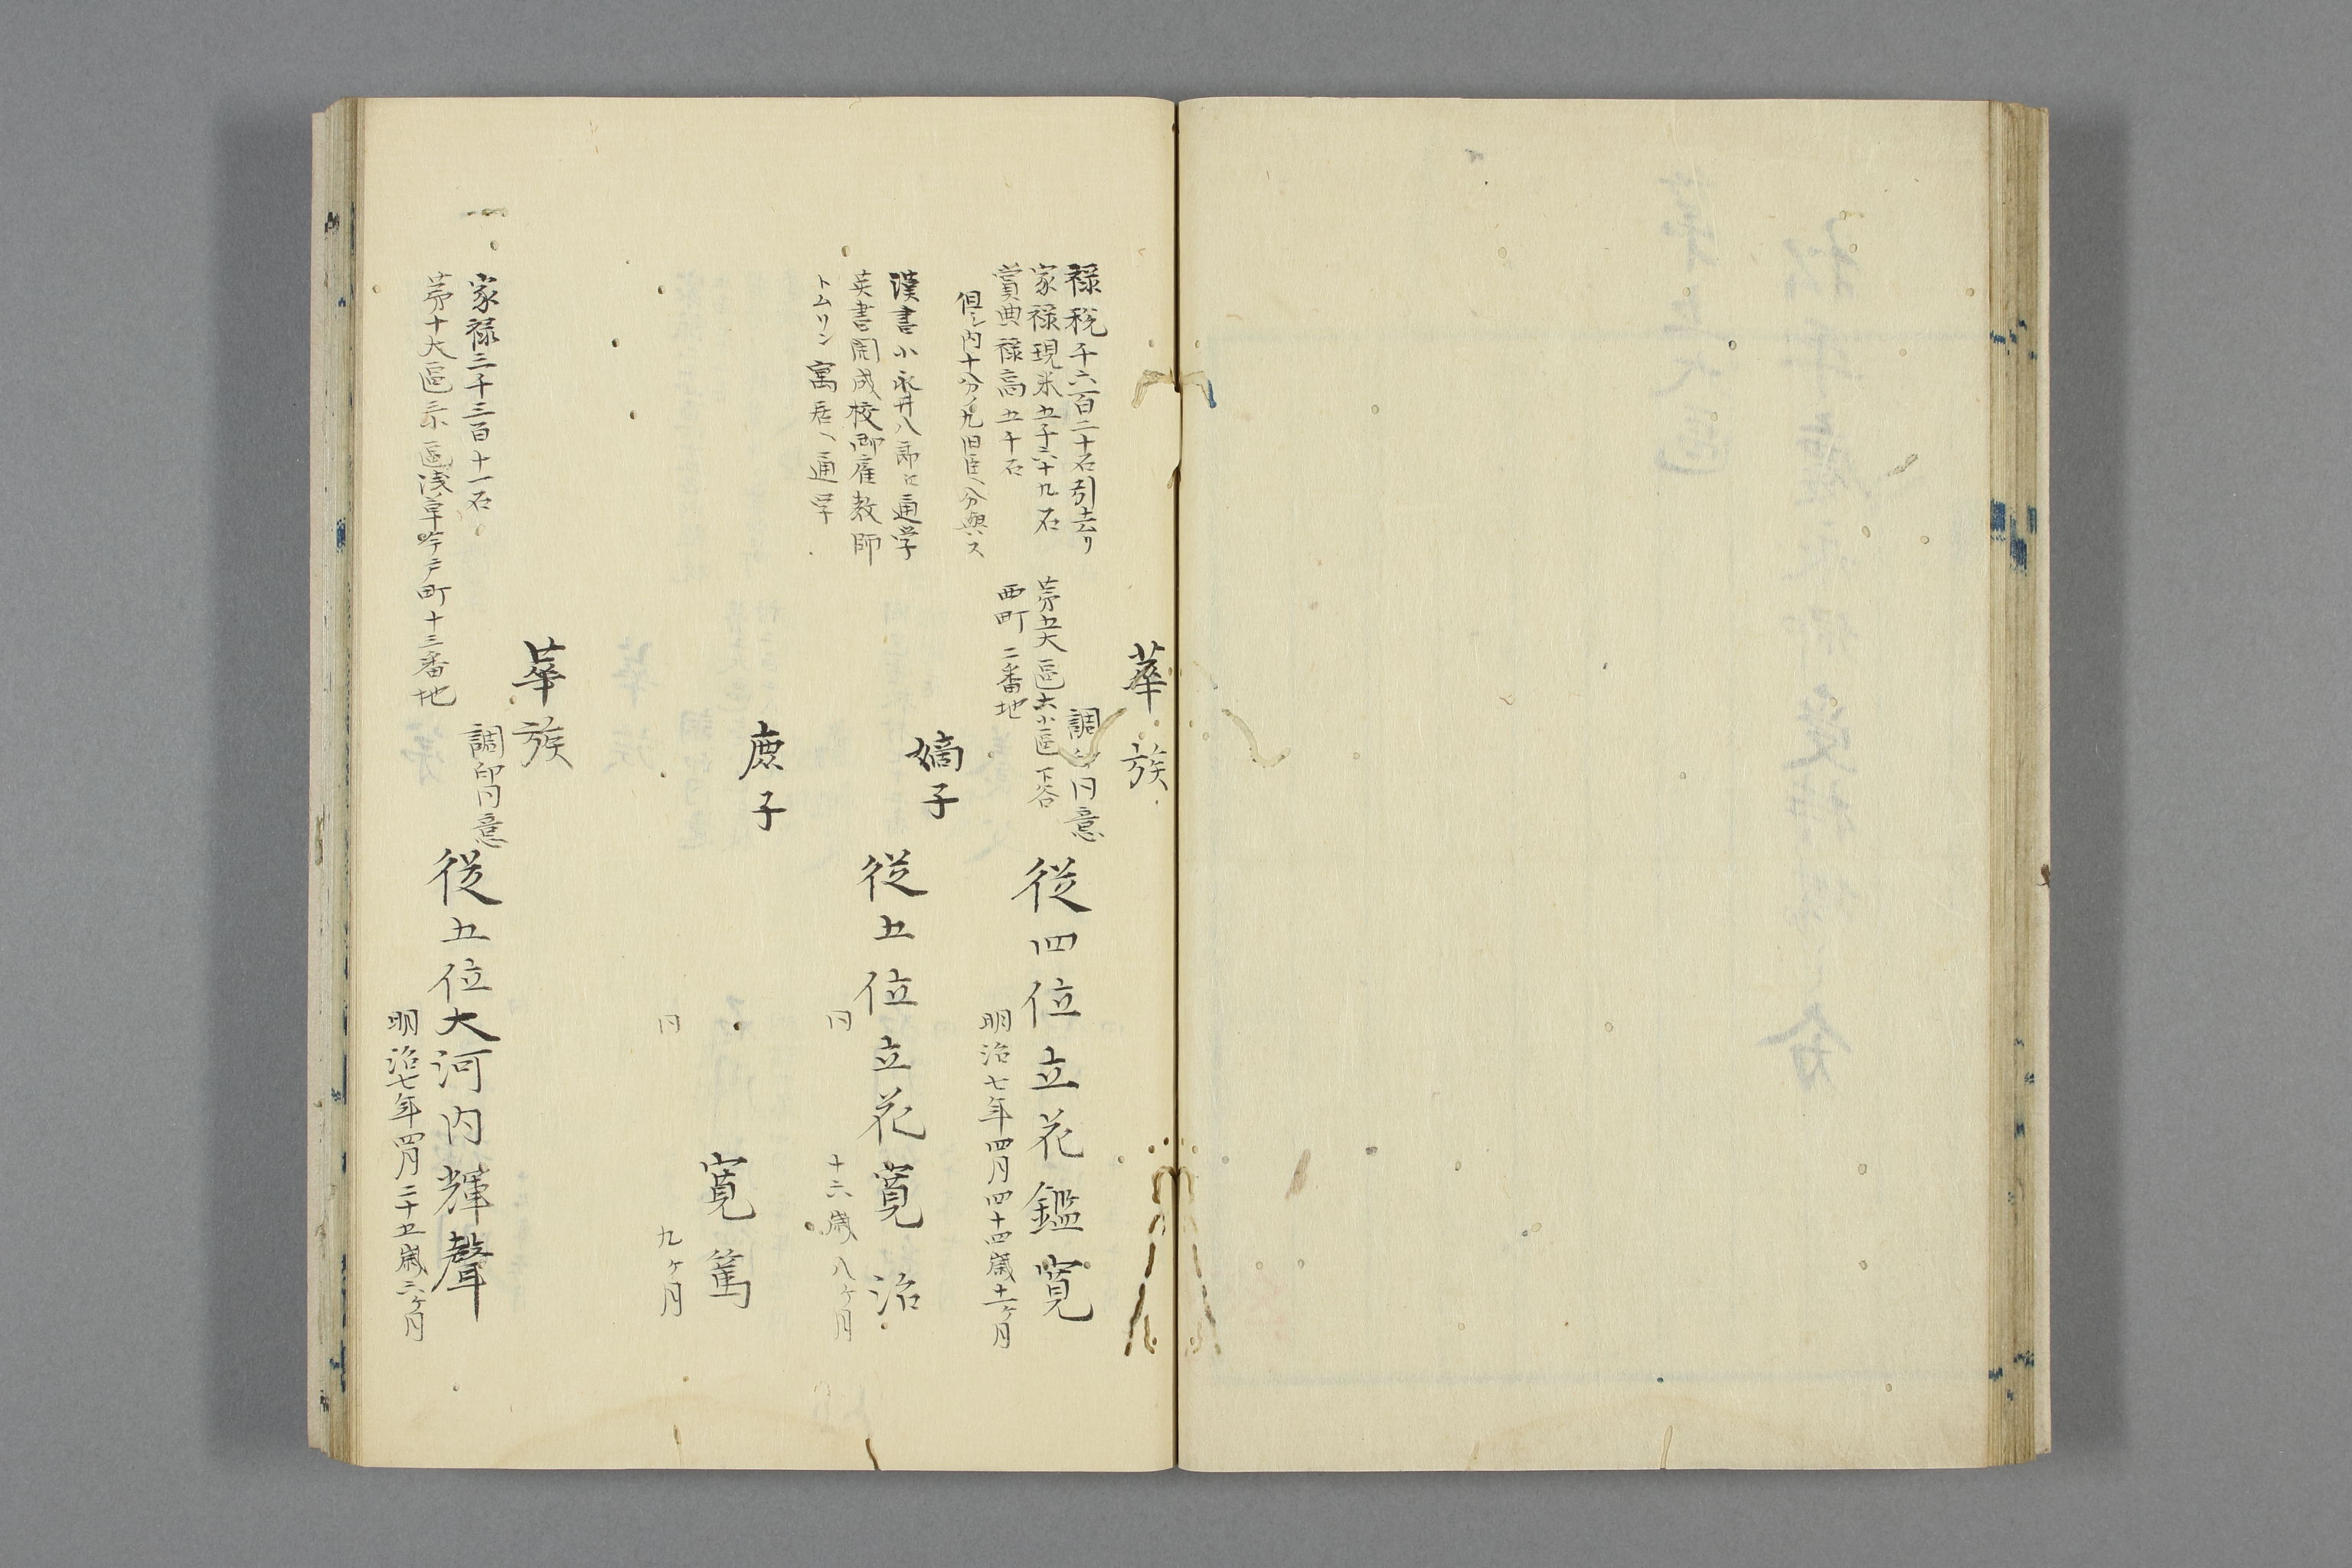 華族
調印同意
禄税千六百二十石引去リ
家禄現米五千六十九石
賞典禄高五千石
但シ内十分ノ九旧臣ヘ分與ス
第五大區六小區下谷
西町二番地
従四位立花鑑寛
明治七年四月四十四歳十一ヶ月
嫡子
漢書小永井八郎ニ通学
英書開成校御雇教師
トムリン寓居ヘ通学
従五位立花寛治
同 十六歳八ヶ月
庶子
寛篤
同 九ヶ月
華族
調印同意
一 家禄三千三百十一石
第十大區 區浅草 町十三番地
従五位大河内輝聲
明治七年四月二十五歳六ヶ月